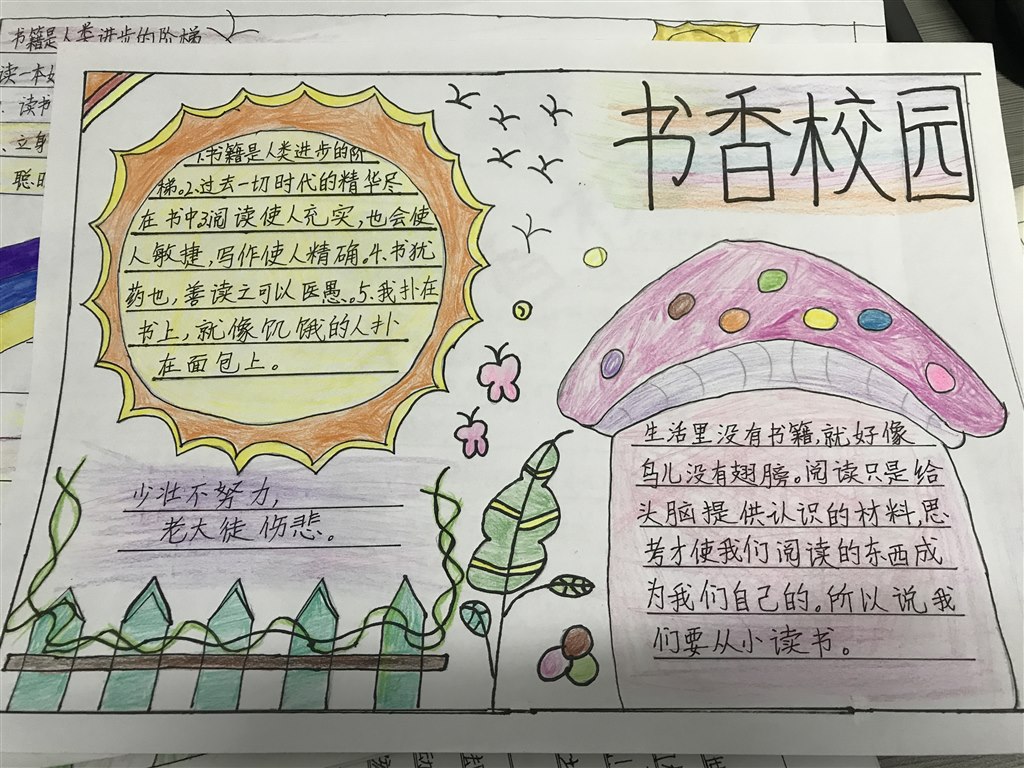 书籍是人类进步的阶梯
读一本好
读书
立身
聪明
书香校园
1.书籍是人类进步的阶
梯。2.过去一切时代的精华尽
在书中3.阅读使人充实,也会使
人敏捷,写作使人精确。4.书犹
药也,善读之可以医愚。5.我扑在
书上,就像饥饿的人扑
在面包上。
少壮不努力,
老大徒伤悲。
生活里没有书籍,就好像
鸟儿没有翅膀。阅读只是给
头脑提供认识的材料,思
考才使我们阅读的东西成
为我们自己的。所以说我
们要从小读书。